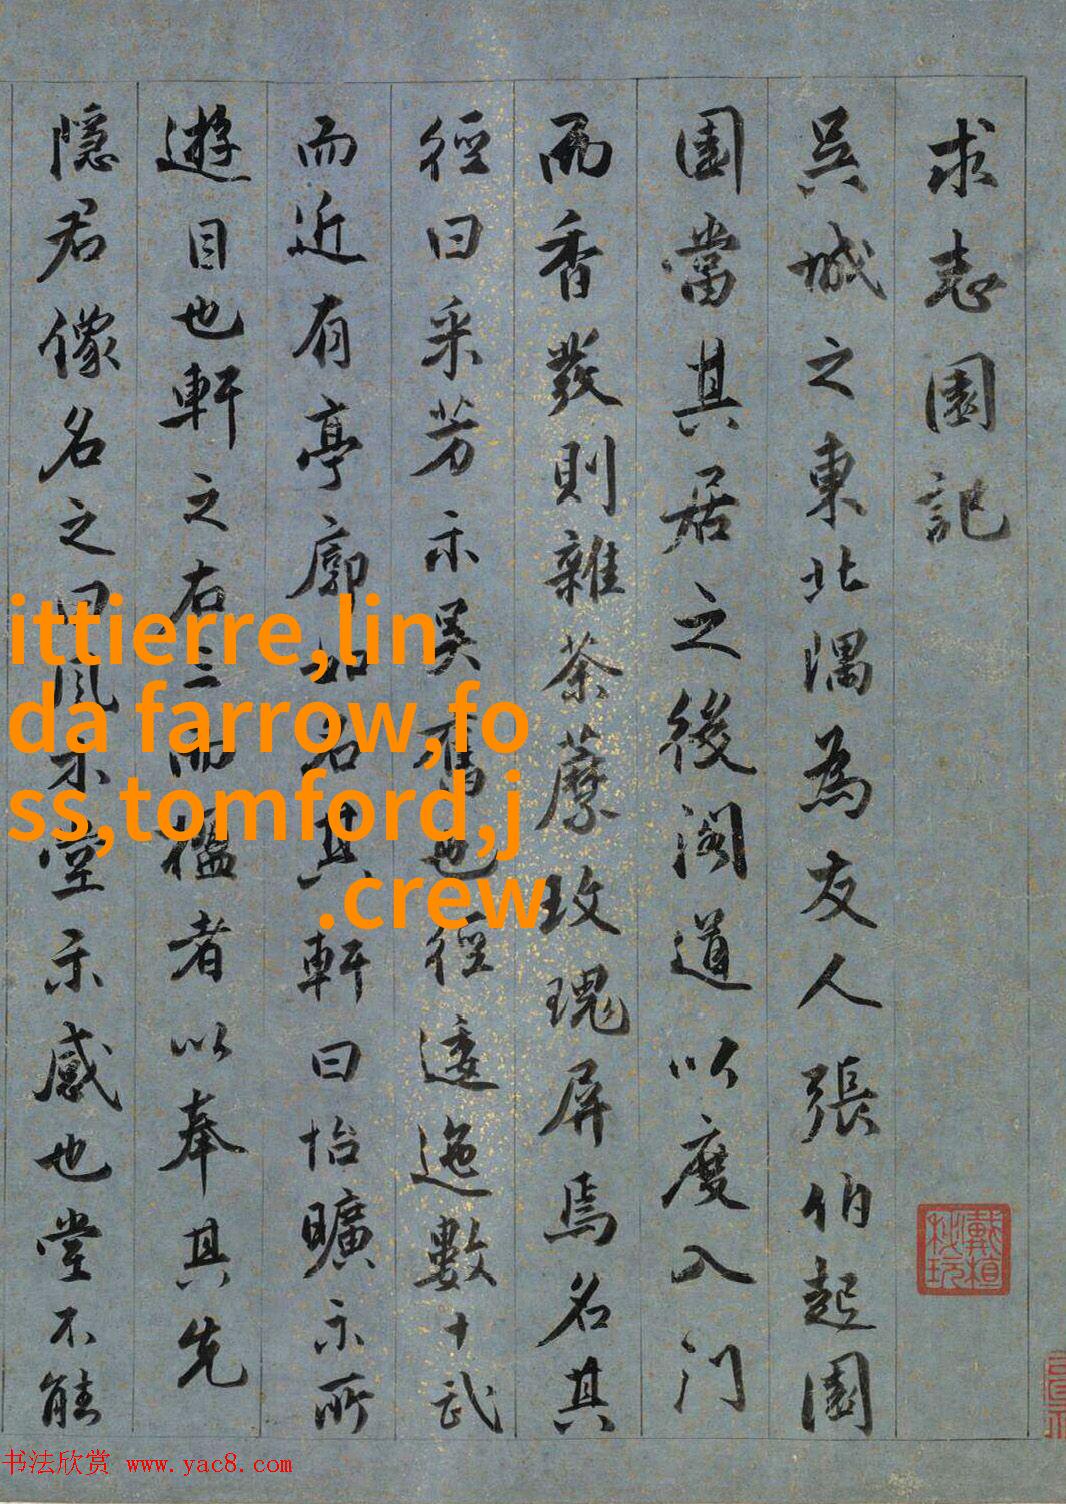 求志園記
吳城之東北隅為友人張伯起園
園當其居之後閣道以度入門
而香發則雜荼蘼玫瑰屏焉名其
徑曰采芳示吳舊也徑逶迤數十武
而近有亭廓如名其軒曰怡曠示所
遊目也軒之右三而楹者以奉其先
隱君像名之曰風木堂示感也堂不能
ittierre,lin
da farrow,fo
ss,tomford,j
.crew
戴植
秘玩
书法欣赏 www.yac8.com